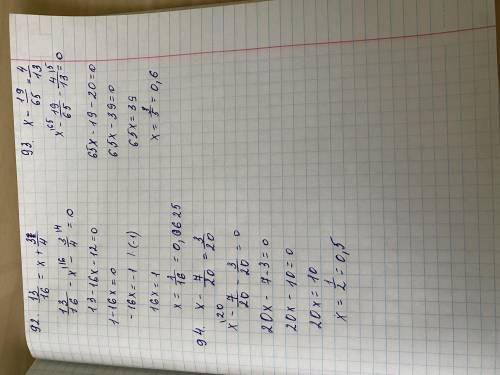 92. 13/16 = x + 3/4
13/16 - x^16 - 3/4^14 = 0
13 - 16x - 12 = 0
1 - 16x = 0
-16x = -1 | (-1)
16x = 1
x = 1/16 = 0,0625
94. x - 7/20 = 3/20
x^20 - 7/20 - 3/20 = 0
20x - 7 - 3 = 0
20x - 10 = 0
20x = 10
x = 1/2 = 0,5
93. x - 19/65 = 4/13
x^65 - 19/65 - 4/13^15 = 0
65x - 19 - 20 = 0
65x - 39 = 0
65x = 39
x = 3/5 = 0,6